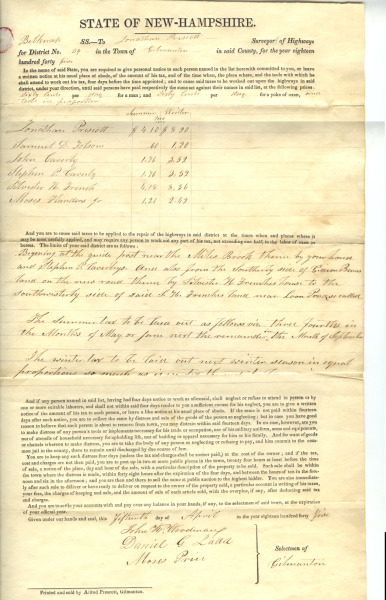 STATE OF NEW-HAMPSHIRE.
Belknap SS.—To Jonathan Prescott Surveyor of Highways
for District No. 29 in the Town of Gilmanton in said County, for the year eighteen
hundred forty five
In the name of said State, you are required to give personal notice to each person named in the list herewith committed to you, or leave
a written notice at his usual place of abode, of the amount of his tax, and of the time when, the place where, and the tools with which he
shall attend to work out his tax, four days before the time appointed; and to cause to be worked out upon the highways in said
district, under your direction, until said persons have paid respectively the amount against their names in said list, at the following prices:
Sixty Cents per day for a man; and Sixty Cents per day for a yoke of oxen, and
tools in proportion
Summer Winter
tax
Jonathan Prescott $ 4.10 $ 8.20
Samuel D. Folsom .60 1.20
John Caverly 1.76
Stephen P. Caverly 1.76
Sylvester W. French 4.18 8.36
Moses Flanders Jr
And you are to cause said taxes to be applied to the repair of the highways in said district at the times when and places where it
may be most usefully applied, and may require any person to work out any part of his tax, not exceeding one half, in the labor of oxen or
horses. The limits of your said district are as follows:
Begining at the guide post near the Miles Brook thence by your house
and Stephen P. Caverlys. And also from the Southerly side of
land on the new road thence by Sylvester W Frenches house to the
southwesterly side of said S. W. Frenches land near Loon Pond so called
The Summer tax to be laid out as follows viz three fourths in
the Months of May or June next the remainder The Month of September
The winter tax to be laid out next winter season in equal
proportions so much as is
And if any person named in said list, having had four days notice to work as aforesaid, shall neglect or refuse to attend in person or by
one or more suitable laborers, and shall not within said four days render to you a sufficient excuse for his neglect, you are to give a written
notice of the amount of his tax to such person, or leave such notice at his usual place of abode. If the same is not paid within fourteen
days after such notice, you are to collect the same by distress and sale of the goods of the person so neglecting; but in case you have good
reason to believe that such person is about to remove from town, you may distrain within said fourteen days. In no case, however, are you
to make distress of any person's tools or implements necessary for his trade or occupation, nor of his military uniform, arms and equipments,
nor of utensils of household necessary for upholding life, nor of bedding or apparel necessary for him or his family. And for want of goods
or chattels whereon to make distress, you are to take the body of any person so neglecting or refusing to pay, and him commit to the common
jail in the county, there to remain until discharged by the course of law.
You are to keep any such distress four days (unless the tax and charges shall be sooner paid,) at the cost of the owner; and if the tax,
cost and charges are not then paid, you are to post up in two or more public places in the town, twenty four hours at least before the time
of sale, a notice of the place, day and hour of the sale, with a particular description of the property to be sold. Such sale should be within
the town where the distress is made, within forty eight hours after the expiration of the four days, and between the hours of ten in the forenoon
and six in the afternoon; and you are then and there to sell the same at public auction to the highest bidder. You are also immediately
after such sale to deliver or have ready to deliver on request to the owner of the property sold, a particular account in writing of his taxes,
your fees, the charges of keeping and sale, and the amount of sale of each article sold, with the overplus, if any, after deducting said tax
and charges.
And you are to settle your accounts with and pay over any balance in your hands, if any, to the selectmen of said town, at the expiration
of your official year.
Given under our hands and seal, this fifteenth day of April in the year eighteen hundred forty five
John W. Woodman
Daniel C Ladd
Moses Price
Selectmen of
Gilmanton
Printed and sold by Alfred Prescott, Gilmanton.